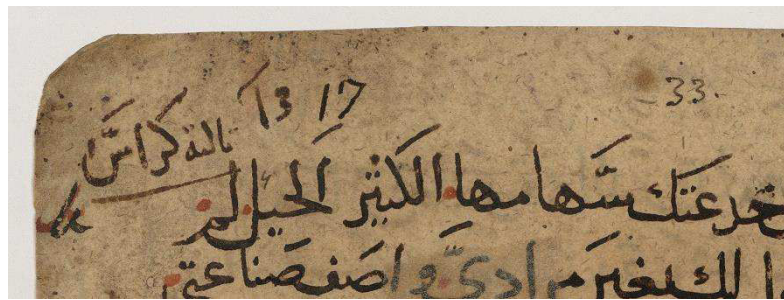 33. 17 13
ثالثة كراس
عنك سهامها الكثير الحيل لم
لك بغير مرادي واصف صناعتي